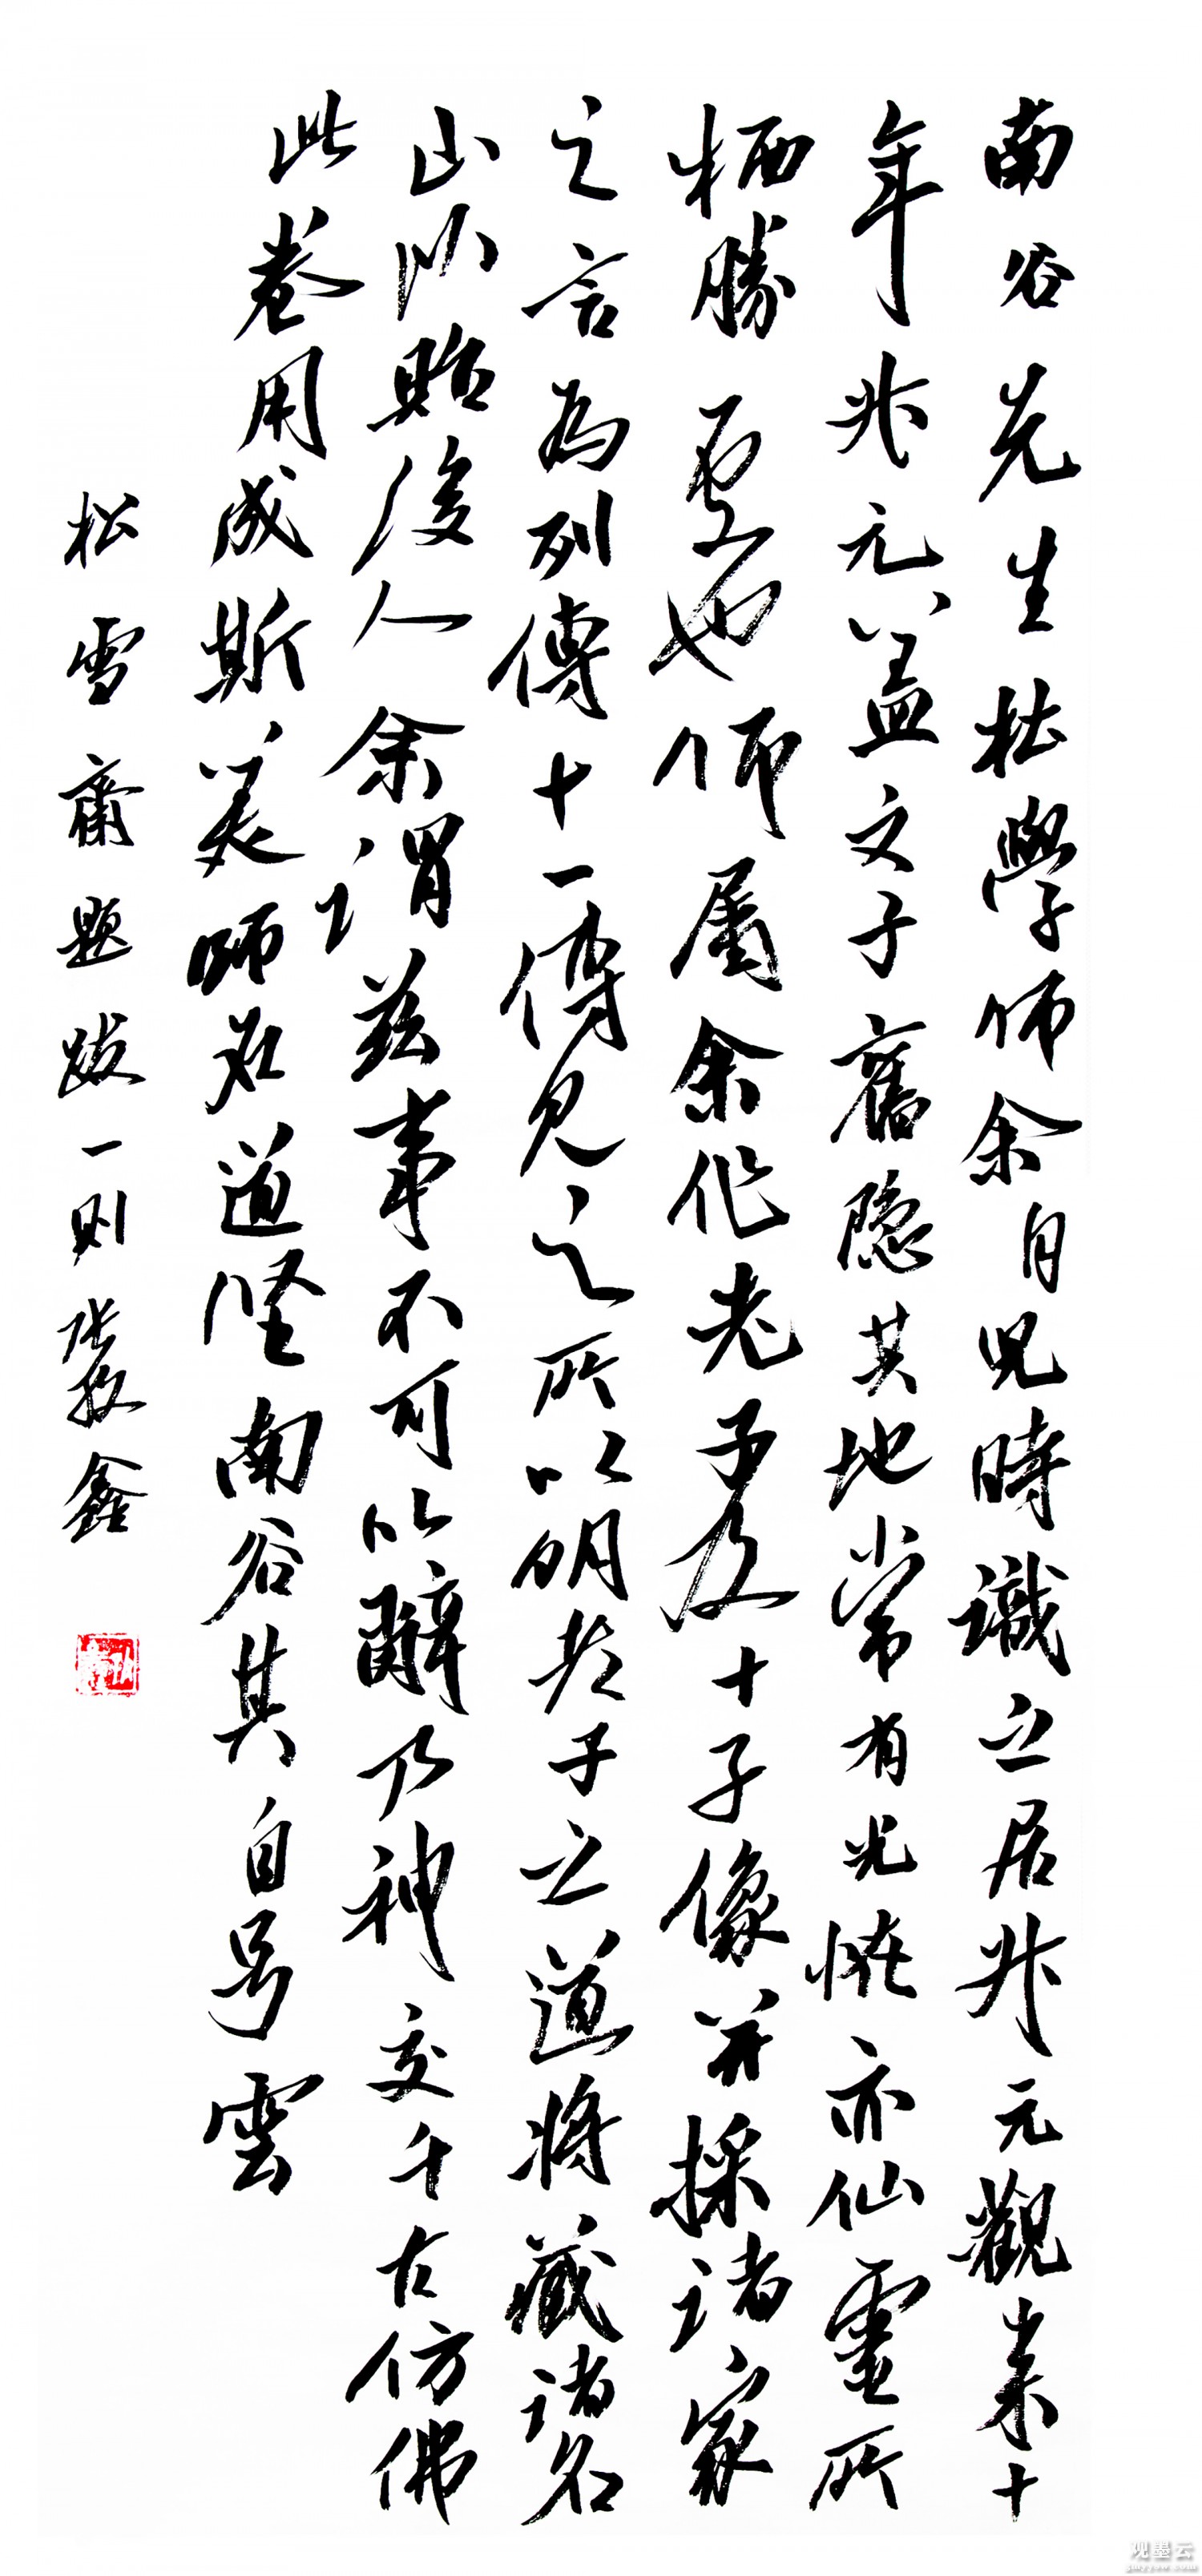 南谷先生杜學師余自兒時識之居昇元觀案十
年昇元蓋文子舊隱其地常有光恠亦仙靈所
栖勝處也師屬余作老子及十子像并採諸家
之言為列傳十一傳見之所以明老子之道將藏諸名
山以貽後人余謂茲事不可以辭乃神交千古仿佛
此卷用成斯美師名道堅南谷其自号雲
松雪齋題跋一則張敬鑫
观墨云